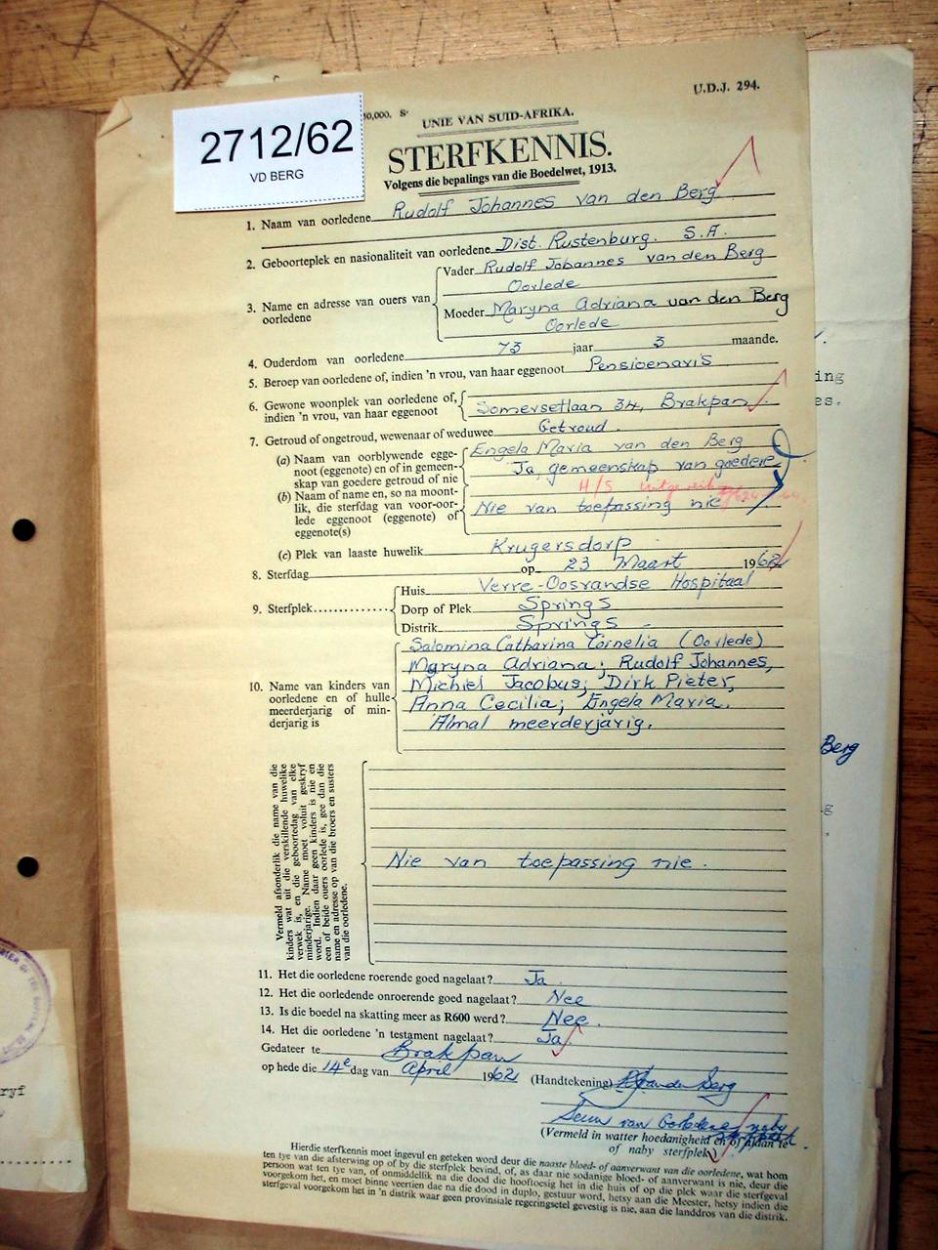 U.D.J. 294.
2712/62
VD BERG
UNIE VAN SUID-AFRIKA.
STERFKENNIS.
Volgens die bepalings van die Boedelwet, 1913.
1. Naam van oorledene Rudolf Johannes van den Berg
2. Geboorteplek en nasionaliteit van oorledene Dist. Rustenburg. S.A.
3. Name en adresse van ouers van oorledene
Vader Rudolf Johannes van den Berg
Oorlede
Moeder Maryna Adriana van den Berg
Oorlede
4. Ouderdom van oorledene 73 jaar 3 maande.
5. Beroep van oorledene of, indien 'n vrou, van haar eggenoot Pensioenaris
6. Gewone woonplek van oorledene of, indien 'n vrou, van haar eggenoot
Somersetlaan 34, Brakpan.
7. Getroud of ongetroud, wewenaar of weduwee Getroud.
(a) Naam van oorblywende eggenoot (eggenote) en of in gemeenskap van goedere getroud of nie
Engela Maria van den Berg
Ja, gemeenskap van goedere
H/S
(b) Naam of name en, so na moontlik, die sterfdag van voor-oorlede eggenoot (eggenote) of eggenote(s)
Nie van toepassing nie
(c) Plek van laaste huwelik Krugersdorp
8. Sterfdag op 23 Maart 1962
9. Sterfplek
Huis Verre-Oosrandse Hospitaal
Dorp of Plek Springs
Distrik Springs
10. Name van kinders van oorledene en of hulle meerderjarig of minderjarig is
Salomina Catharina Cornelia (Oorlede)
Maryna Adriana; Rudolf Johannes,
Michiel Jacobus; Dirk Pieter,
Anna Cecilia; Engela Maria.
Almal meerderjarig.
Vermeld afsonderlik die name van die
kinders wat uit die verskillende huwelike
verwek is, en die geboortedag van elke
minderjarige. Name moet voluit geskryf
word. Indien daar geen kinders is nie en
een of beide ouers oorlede is, gee dan die
name en adresse op van die broers en susters
van die oorledene.
Nie van toepassing nie.
11. Het die oorledene roerende goed nagelaat? Ja
12. Het die oorledende onroerende goed nagelaat? Nee
13. Is die boedel na skatting meer as R600 werd? Nee.
14. Het die oorledene 'n testament nagelaat? Ja
Gedateer te Brakpan
op hede die 14e dag van April 1962 (Handtekening) van den Berg
Seun van Oorledene
(Vermeld in watter hoedanigheid en of
of naby sterfplek
Hierdie sterfkennis moet ingevul en geteken word deur die naaste bloed- of aanverwant van die oorledene, wat hom
ten tye van die afsterwing op of by die sterfplek bevind, of, as daar nie sodanige bloed- of aanverwant is nie, deur die
persoon wat ten tye van, of onmiddellik na die dood die hooftoesig het in die huis of op die plek waar die sterfgeval
voorgekom het, en moet binne veertien dae na die dood in duplo, gestuur word, hetsy aan die Meester, hetsy indien die
sterfgeval voorgekom het in 'n distrik waar geen provinsiale regeringsetel gevestig is nie, aan die landdros van die distrik.
Berg